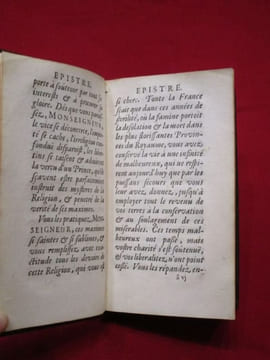 EPISTRE.
porte à soutenir par tout ses
interests & à procurer sa
gloire. Dés que vous parois-
sez, MONSEIGNEUR,
le vice se déconcerte, l'impie-
té se cache, l'heresie confon-
duë disparoist, les liber-
tins se taisent & admirent
la vertu d'un Prince, qui fai-
sant estre parfaitement
instruit des mysteres de la
Religion, & penetré de la
verité de ses maximes.
Vous les pratiquez, MON-
SEIGNEUR, ces maximes
si saintes & si sublimes, &
vous remplissez avec exa-
ctitude tous les devoirs de
cette Religion, qui vous est
EPISTRE.
si chere. Toute la France
sçait que dans ces années de
sterilité, où la famine portoit
la desolation & la mort dans
les plus florissantes Provin-
ces du Royaume, vous avez
conservé la vie à une infini-
té de malheureux, qui ne res-
pirent aujourd'huy que par les
puissans secours que vous
leur avez donnez, jusqu'à
employer tout le revenu de
vos terres à la conservation
& au soulagement de ces
miserables. Ces temps mal-
heureux ont passé, mais
vostre charité s'est soutenuë,
& vos liberalitez, n'ont point
cessé. Vous les répandez, en-